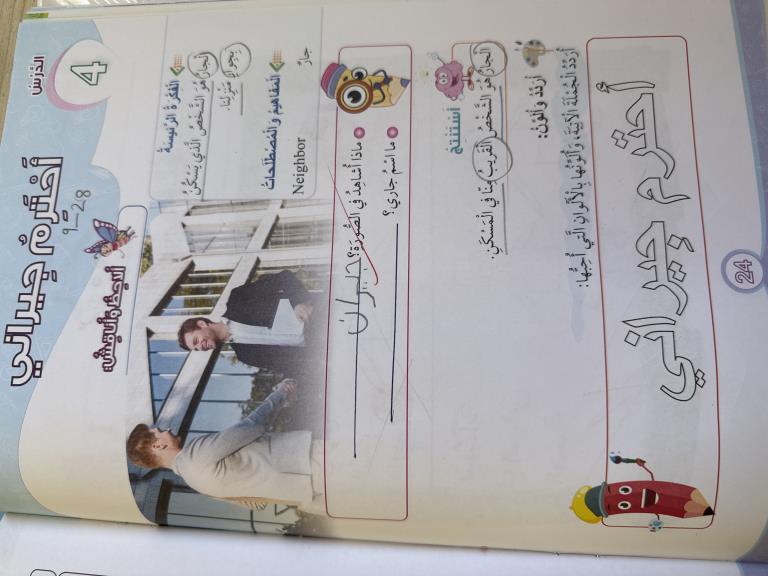 الدَّرْسُ
4
أَحْتَرِمُ جِيرَانِي
9-28
أُلَاحِظُ وَأُنَاقِشُ:
الْفِكْرَةُ الرَّئِيسَةُ
الْجَارُ هُوَ الشَّخْصُ الَّذِي يَسْكُنُ
بِجِوَارِ مَنْزِلِنَا.
الْمَفَاهِيمُ وَالْمُصْطَلَحَاتُ
جَارٌ
Neighbor
مَاذَا أُشَاهِدُ فِي الصُّورَةِ؟ جيران
مَا اسْمُ جَارِي؟
أَسْتَنْتِجُ
الْجَارُ هُوَ الشَّخْصُ الْقَرِيبُ مِنَّا فِي الْمَسْكَنِ.
أُرَدِّدُ وَأُلَوِّنُ:
أُرَدِّدُ الْجُمْلَةَ الْآتِيَةَ، وَأُلَوِّنُهَا بِالْأَلْوَانِ الَّتِي أُحِبُّهَا:
أحترم جيراني
24